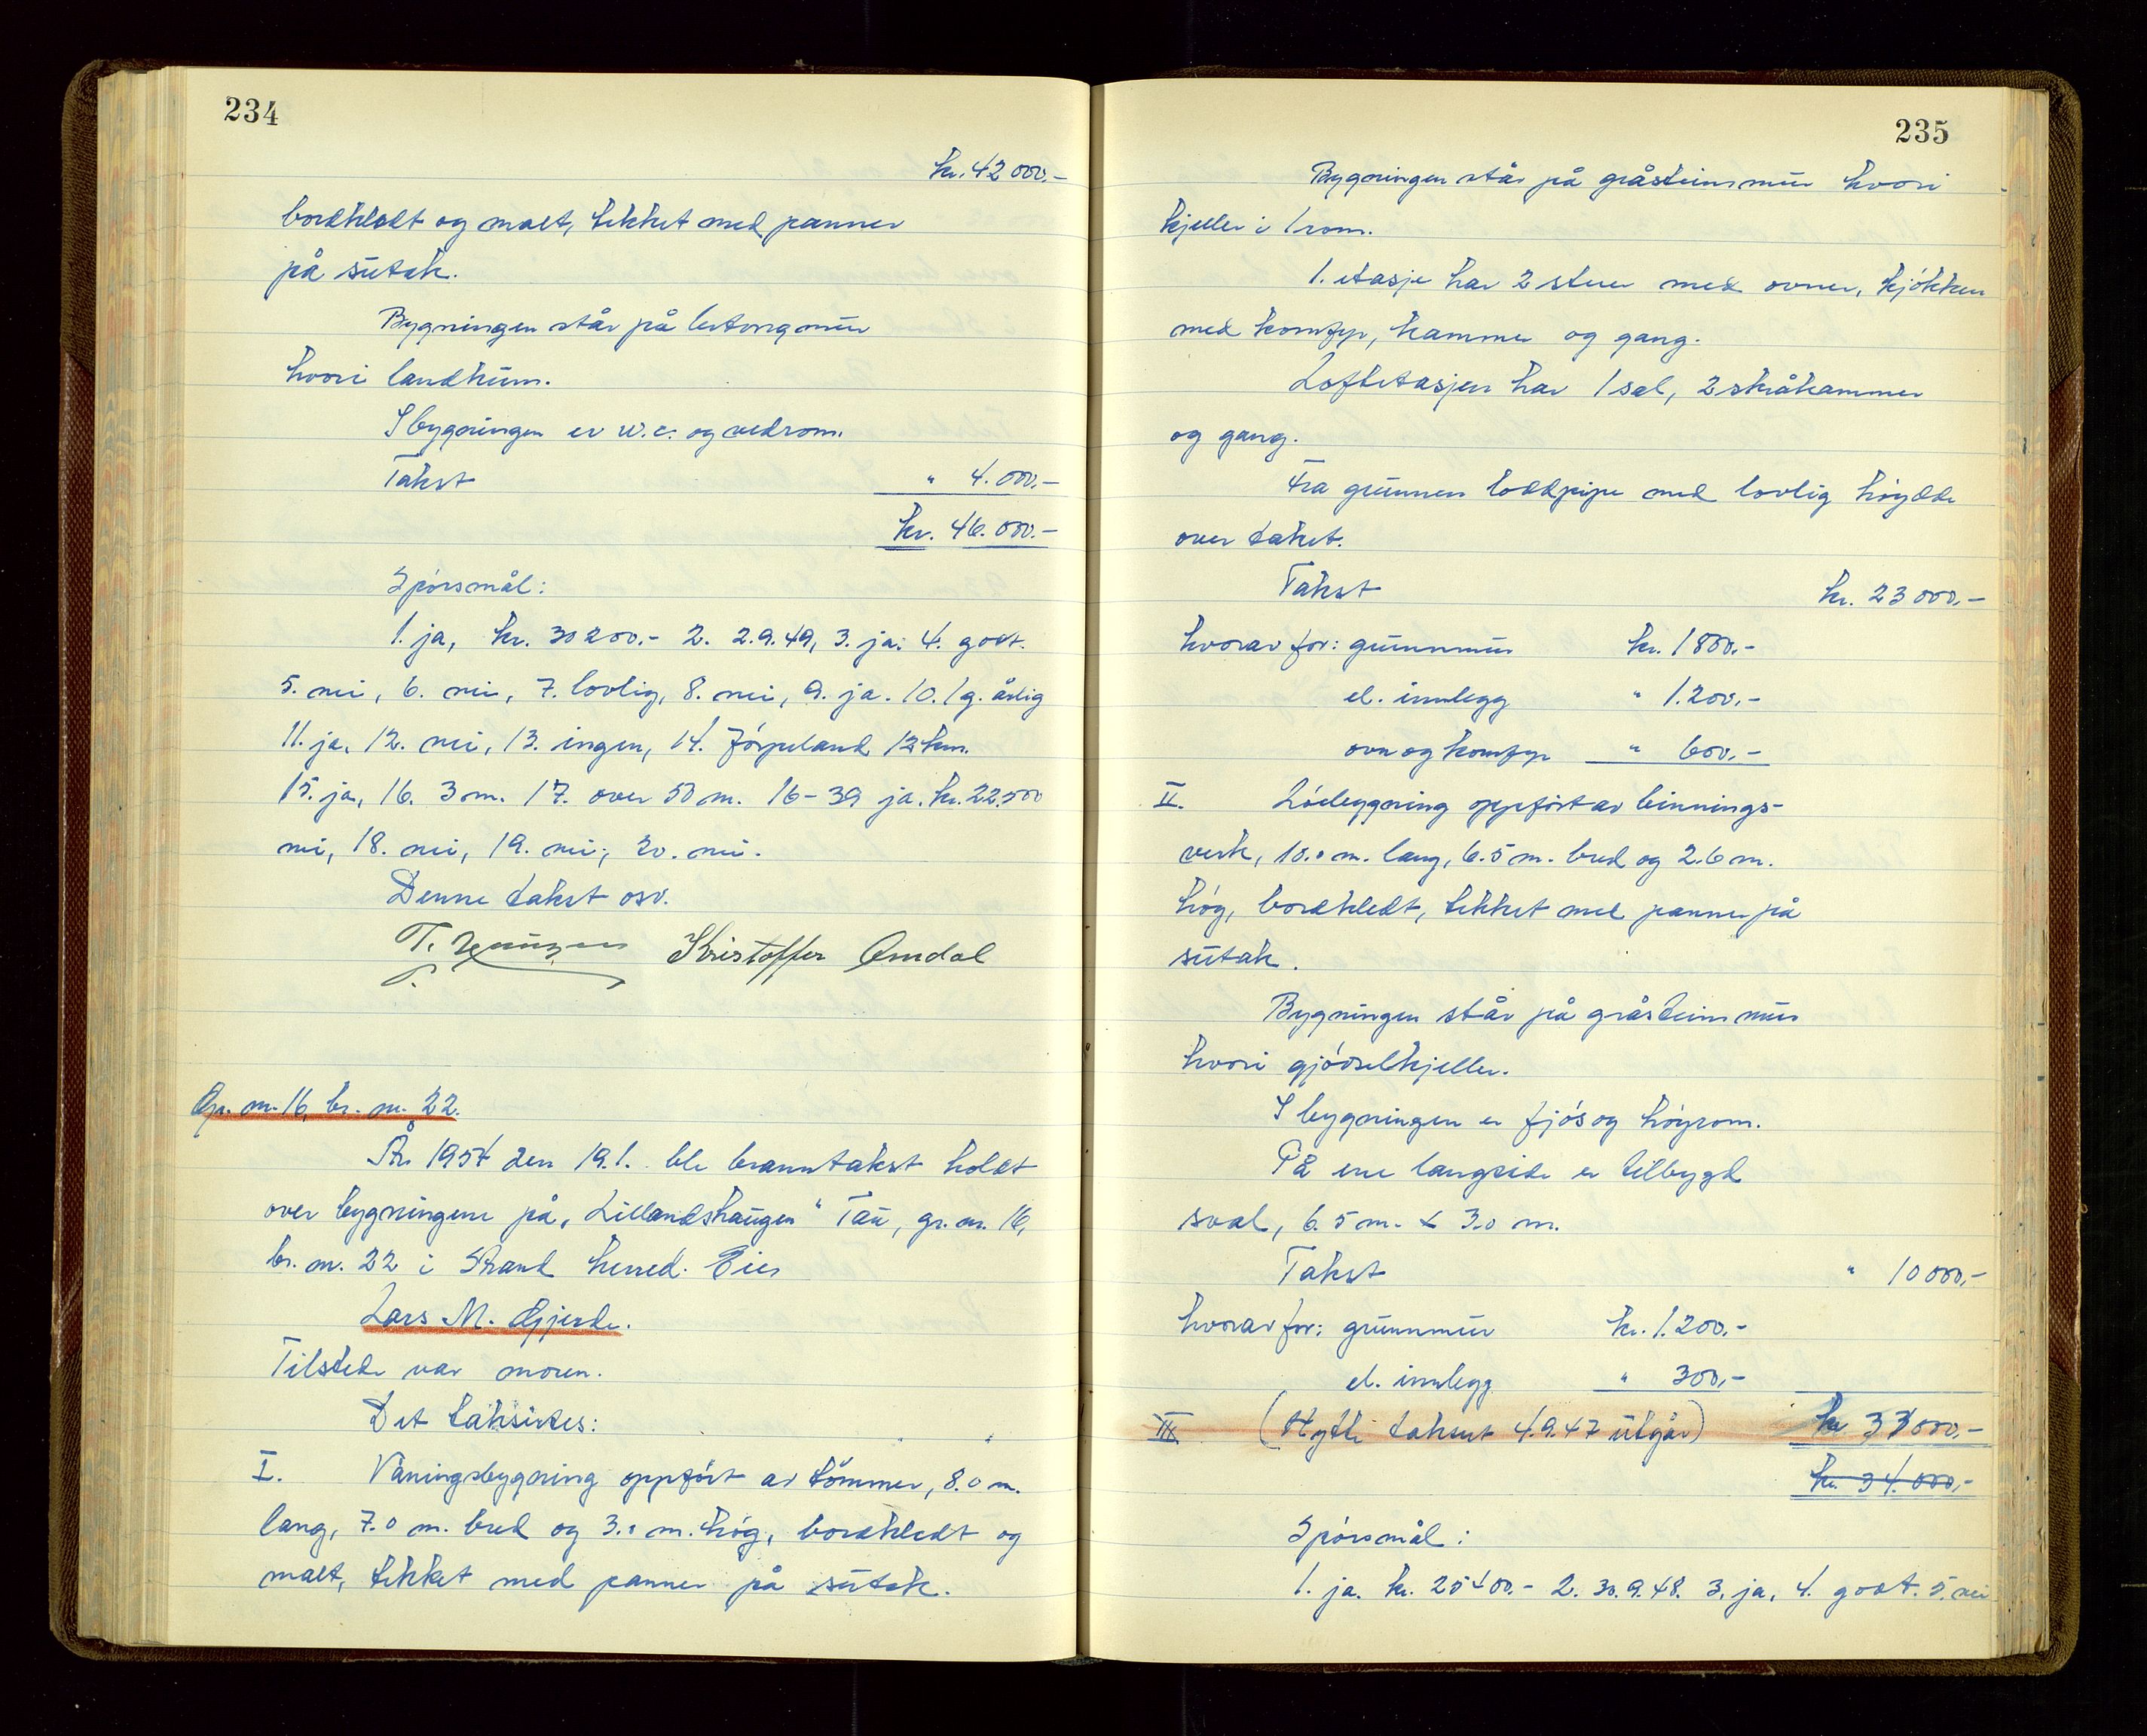 234
kr. 42 000.-
bordkledt og malt, tekket med panner
på sutak.
Bygningen står på betongmur
hvori landkum.
I bygningen er w.c. og vedrom.
Takst " 4.000.-
kr. 46.000.-
Spørsmål:
1. ja, kr. 30200.- 2. 2.9.49, 3. ja. 4. godt.
5. nei, 6. nei, 7. lovlig, 8. nei, 9. ja. 10. 1 g. årlig
11. ja, 12. nei, 13. ingen, 14. Jørpeland 12 km.
15. ja, 16. 3 m. 17. over 50 m. 16-39 ja. kr. 22.500
nei, 18. nei, 19. nei, 20. nei.
Denne takst osv.
T. Kristoffer Omdal
Gr. nr. 16, br. nr. 22.
År 1954 den 19.1. ble branntakst holdt
over bygningene på "Lillandshaugen" Tau, gr. nr. 16,
br. nr. 22 i Strand herred. Eier
Lars M. Gjerde.
Tilstede var moren.
Det taksertes:
I. Våningsbygning oppført av tømmer, 8.0 m.
lang, 7.0 m. bred og 3.0 m. høg, bordkledt og
malt, tekket med panner på sutak.
235
Bygningen står på gråsteinsmur hvori
kjeller i 1 rom.
1. etasje har 2 stuer med ovner, kjøkken
med komfyr, kammer og gang.
Loftetasjen har 1 sal, 2 skråkammer
og gang.
Fra grunnen loddpipe med lovlig høyde
over taket.
Takst kr. 23 000.-
hvorav for: grunnmur kr. 1800.-
el. innlegg " 1.200.-
ovn og komfyr " 600.-
II. Løebygning oppført av binnings-
verk, 10.0 m. lang, 6.5 m. bred og 2.6 m.
høg, bordkledt, tekket med panner på
sutak.
Bygningen står på gråsteinsmur
hvori gjødselkjeller.
I bygningen er fjøs og høyrom.
På ene langside er tilbygd
sval, 6.5 m. x 3.0 m.
Takst " 10 000.-
hvorav for: grunnmur kr. 1.200.-
el. innlegg " 300.-
III. (Hytte takset 4.9.47 utgår) kr 33000.-
kr. 34.000.-
Spørsmål:
1. ja. kr. 25400.- 2. 30.9.48. 3. ja, 4. godt. 5. nei